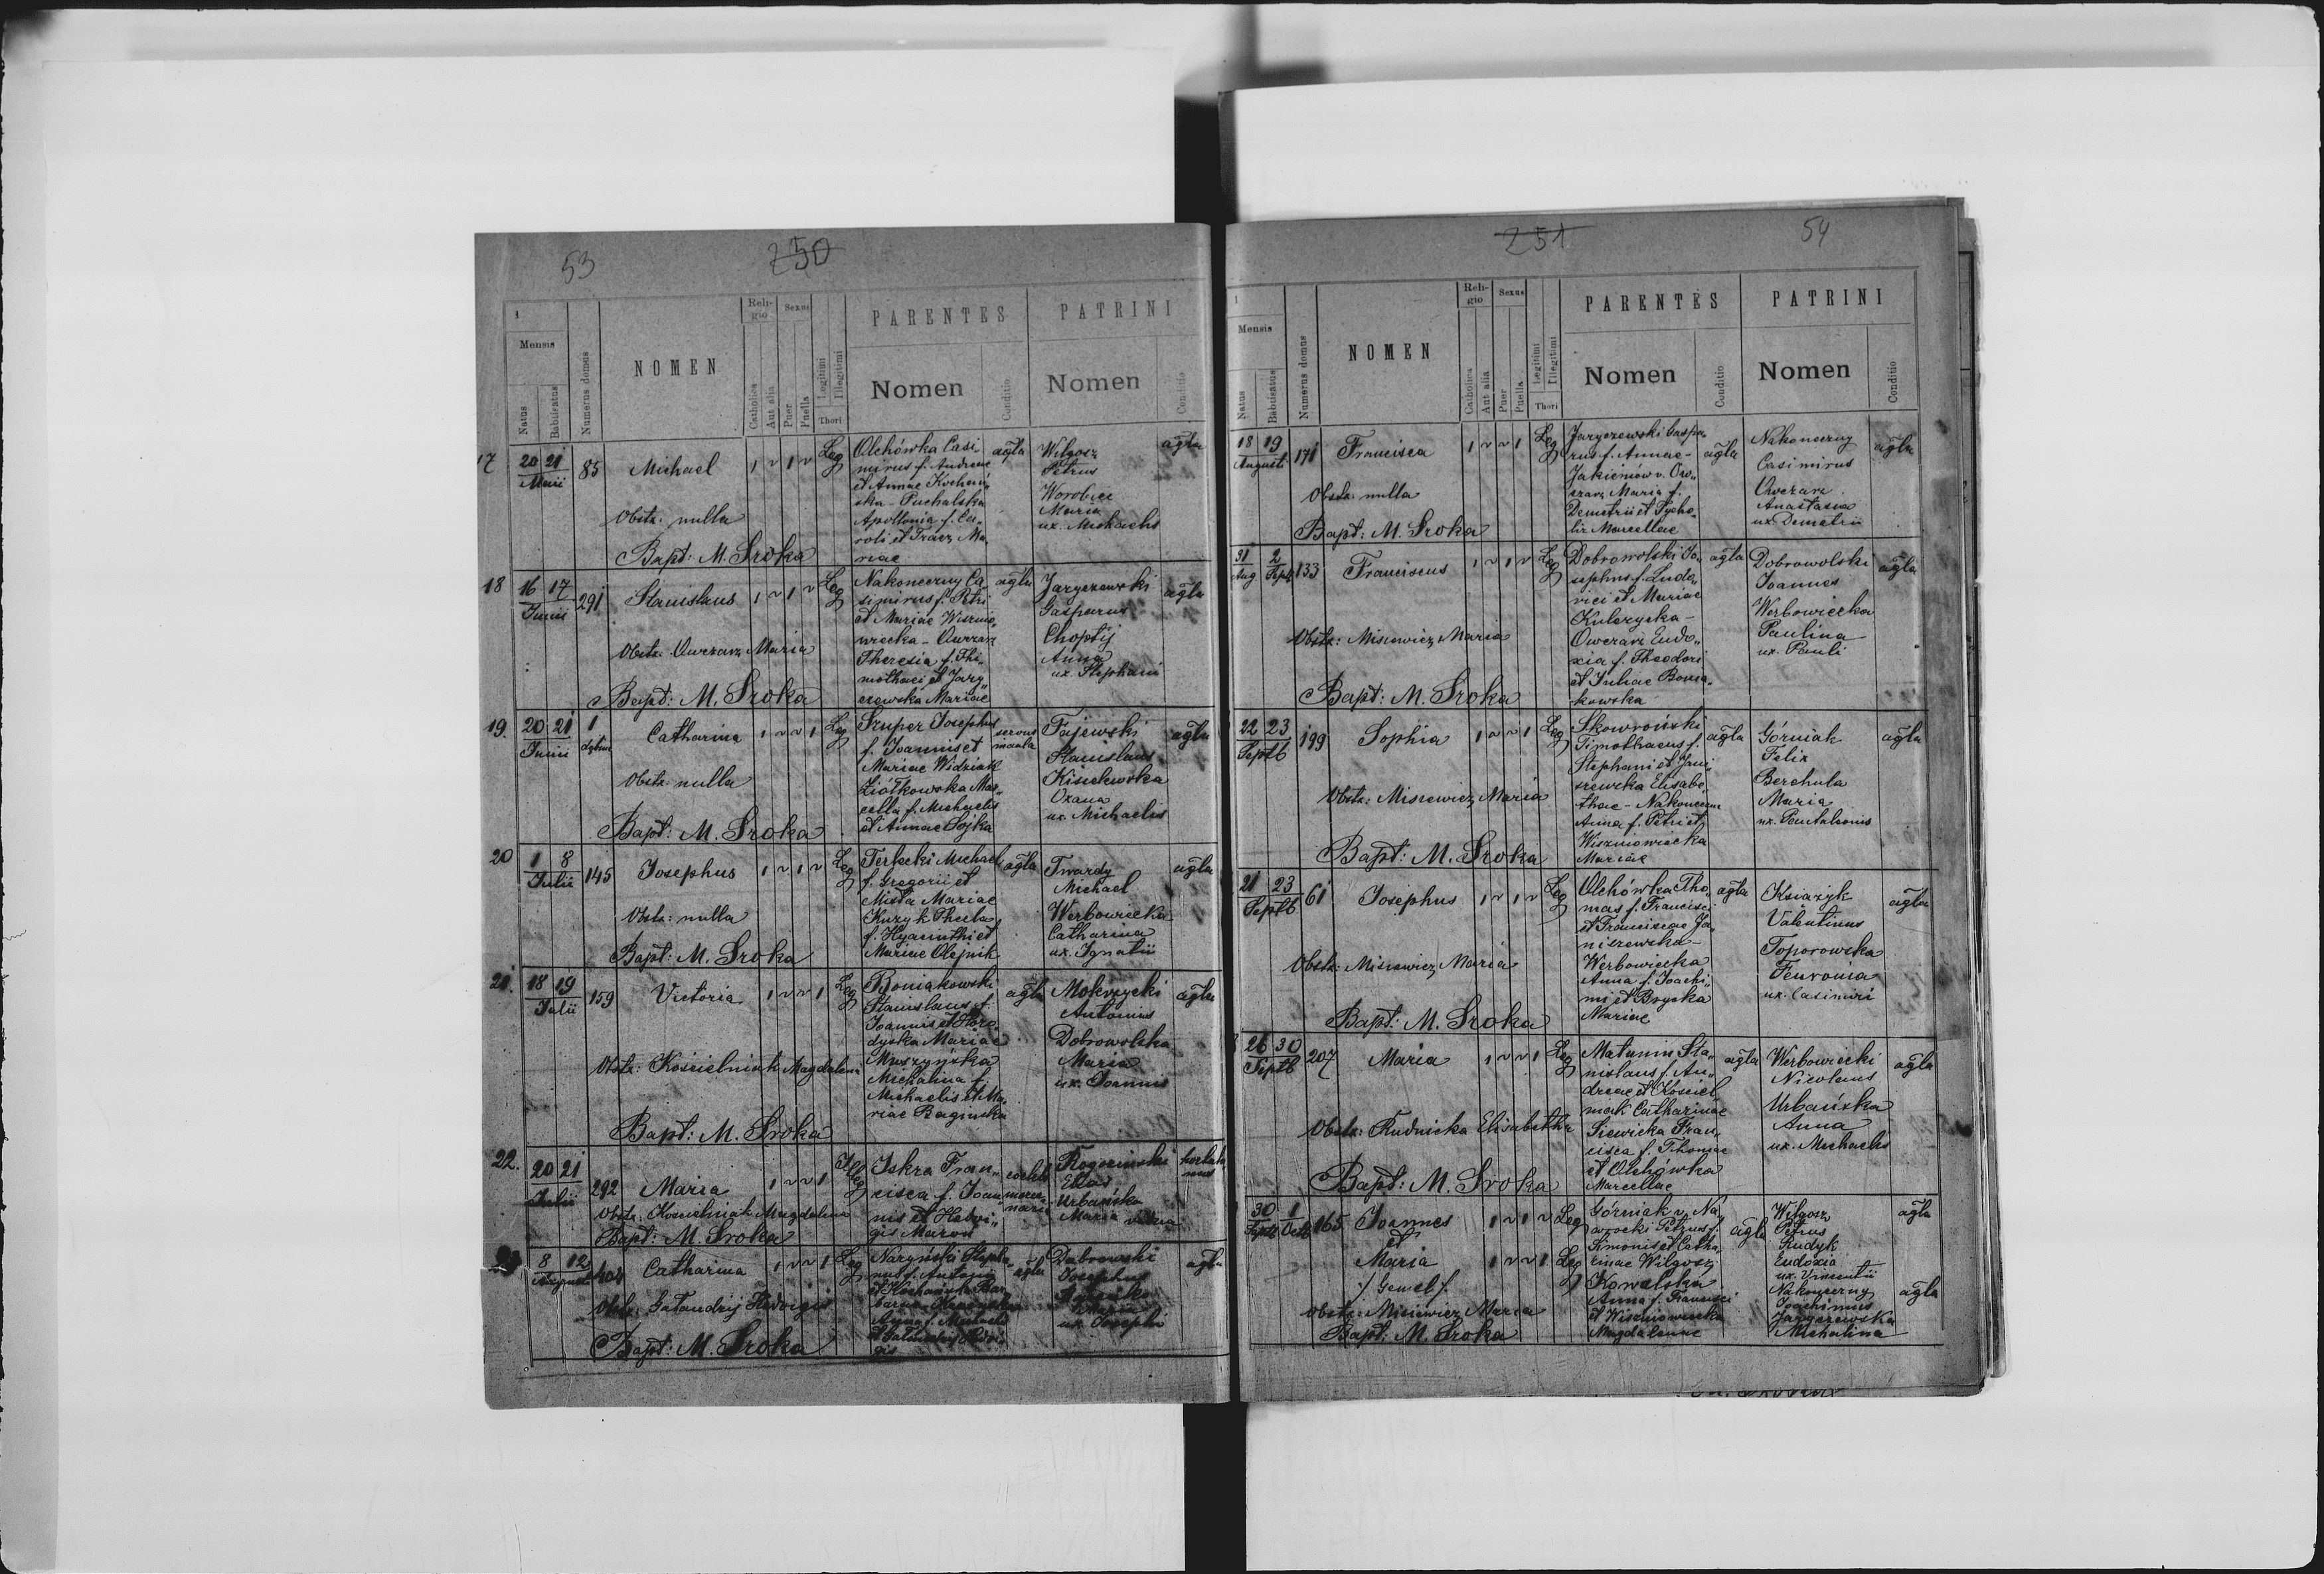 53
250
1
Mensis
Natus
Babtisatus
Numerus domus
NOMEN
Reli-
gio
Catholica
Aut alia
Sexus
Puer
Puella
Legitimi
Illegitimi
Thori
PARENTES
Nomen
Conditio
PATRINI
Nomen
Conditio
17 20 21 Maii 85 Michael 1 1 Leg
Olchówka Casi„
mirus f. Andreae
et Annae
Puchalska
Apollonia f. Ca„
roli et Tracz Ma„
riae
agla
Wilgosz
Petrus
Worobiec
Maria
ux. Michaelis
agla
Obstr. nulla
Bapt: M. Sroka
18 16 17 Junii 291 Stanislaus 1 1 Leg
Nakoneczny Ca
simirus f. Petri
et Mariae Wisznio„
wiecka - Owczarz
Theresia f. Thi„
mothaei et Jary„
czewska Mariae
agla
Jaryczewski
Gasparus
Choptij
Anna
ux. Stephani
agla
Obstr. Owczarz Maria
Bapt: M. Sroka
19. 20 21 Junii 1 Catharina 1 1 Leg
Szuper Josephus
f. Joannis et
Mariae Widziak
Ziółkowska Mar„
cella f. Michaelis
et Annae Sojka
servus
Fajewski
Stanislaus
Kisielewska
Oxana
ux. Michaelis
agla
Obstr. nulla
Bapt: M. Sroka
20 1 8 Julii 145 Josephus 1 1 Leg
Terlecki Michael
f. Gregorii et
Mista Mariae
Kuzyk Thecla
f. Hyacinthi et
Mariae Olejnik
agla
Twardy
Michael
Werbowiecka
Catharina
ux. Ignatii
agla
Obstr. nulla
Bapt: M. Sroka
21. 18 19 Julii 159 Victoria 1 1 Leg
Boniakowski
Stanislaus f.
Joannis et Horo„
dyska Mariae
Muszyńska
Michalina f.
Michaelis et Ma„
riae Baginska
agla
Mokrzycki
Antonius
Dobrowolska
Maria
ux. Joannis
agla
Obstr. Kościelniak Magdalena
Bapt: M. Sroka
22. 20 21 Julii 292 Maria 1 1 Illeg
Iskra Fran„
cisca f. Joan„
nis et Hedvi„
gis Maron
Rogozinski
Urbańska
Maria vidua
Obstr. Kościelniak Magdalena
Bapt: M. Sroka
8 12 Augusti Catharina 1 1 Leg
Narzyński Stepha„
nus f. Antonii
Anna f. Michaelis
agla
Dabrowski
Josephus
ux. Josephi
agla
Obstr. Hedvigis
Bapt: M. Sroka
251
54
1
Mensis
Natus
Babtisatus
Numerus domus
NOMEN
Reli-
gio
Catholica
Aut alia
Sexus
Puer
Puella
Legitimi
Illegitimi
Thori
PARENTES
Nomen
Conditio
PATRINI
Nomen
Conditio
18 19 Augusti 171 Francisca 1 1 Leg
Jaryczewski Gaspa„
rus f. Annae -
Jakieniów v. Ow„
czarz Maria f.
Demetrii et Sycho„
lir Marcellae
agla
Nakoneczny
Casimirus
Owczarz
Anastasia
ux Demetrii
agla
Obstr. nulla
Bapt: M. Sroka
31 Aug 2 Septb 133 Franciscus 1 1 Leg
Dobrowolski Jo„
sephus f. Ludo„
vici et Mariae
Kulczycka -
Owczarz Eudo„
xia f. Theodori
et Juliae Bonia„
kowska
agla
Dobrowolski
Joannes
Werbowiecka
Paulina
ux. Pauli
agla
Obstr: Misiewicz Maria
Bapt: M. Sroka
22 23 Septb 199 Sophia 1 1 Leg
Skowroński
Timothaeus f.
Stephani et Jani„
szewska Elisabe„
thae - Nakoneczna
Anna f. Petri et
Wiszniowiecka
Mariae
agla
Górniak
Felix
Berchula
Maria
ux. Pantaleonis
agla
Obstr: Misiewicz Maria
Bapt: M. Sroka
21 23 Septb 61 Josephus 1 1 Leg
Olchówka Tho„
mas f. Francisci
et Franciscae Ja„
niszewska -
Werbowiecka
Anna f. Joachi„
mi et Bzyska
Mariae
agla
Ksiażyk
Valentinus
Toporowska
Fevronia
ux. Casimiri
agla
Obstr: Misiewicz Maria
Bapt: M. Sroka
26 30 Septb 207 Maria 1 1 Leg
Matunin Sta„
nislaus f. An„
dreae et Kosciel„
niak Catharinae
Siewicka Fran„
cisca f. Thomae
et Olchówka
Marcellae
agla
Werbowiecki
Nicolaus
Urbańska
Anna
ux. Michaelis
agla
Obstr: Rudnicka Elisabetha
Bapt: M. Sroka
30 Septb 1 Octb 165 Joannes 1 1 Leg
et
Maria 1 1 Leg
/ Gemel /
Górniak v. Na„
wrocki Petrus f.
Simonis et Catha„
rinae Wilgosz
Kowalska
Anna f. Francisci
et Wiszniowiecka
Magdalenae
agla
Wilgosz
Petrus
Rudyk
Eudoxia
ux. Vincentii
Nakoneczny
Joachimus
Jaryczewska
Michalina
agla
agla
Obstr: Misiewicz Maria
Bapt: M. Sroka